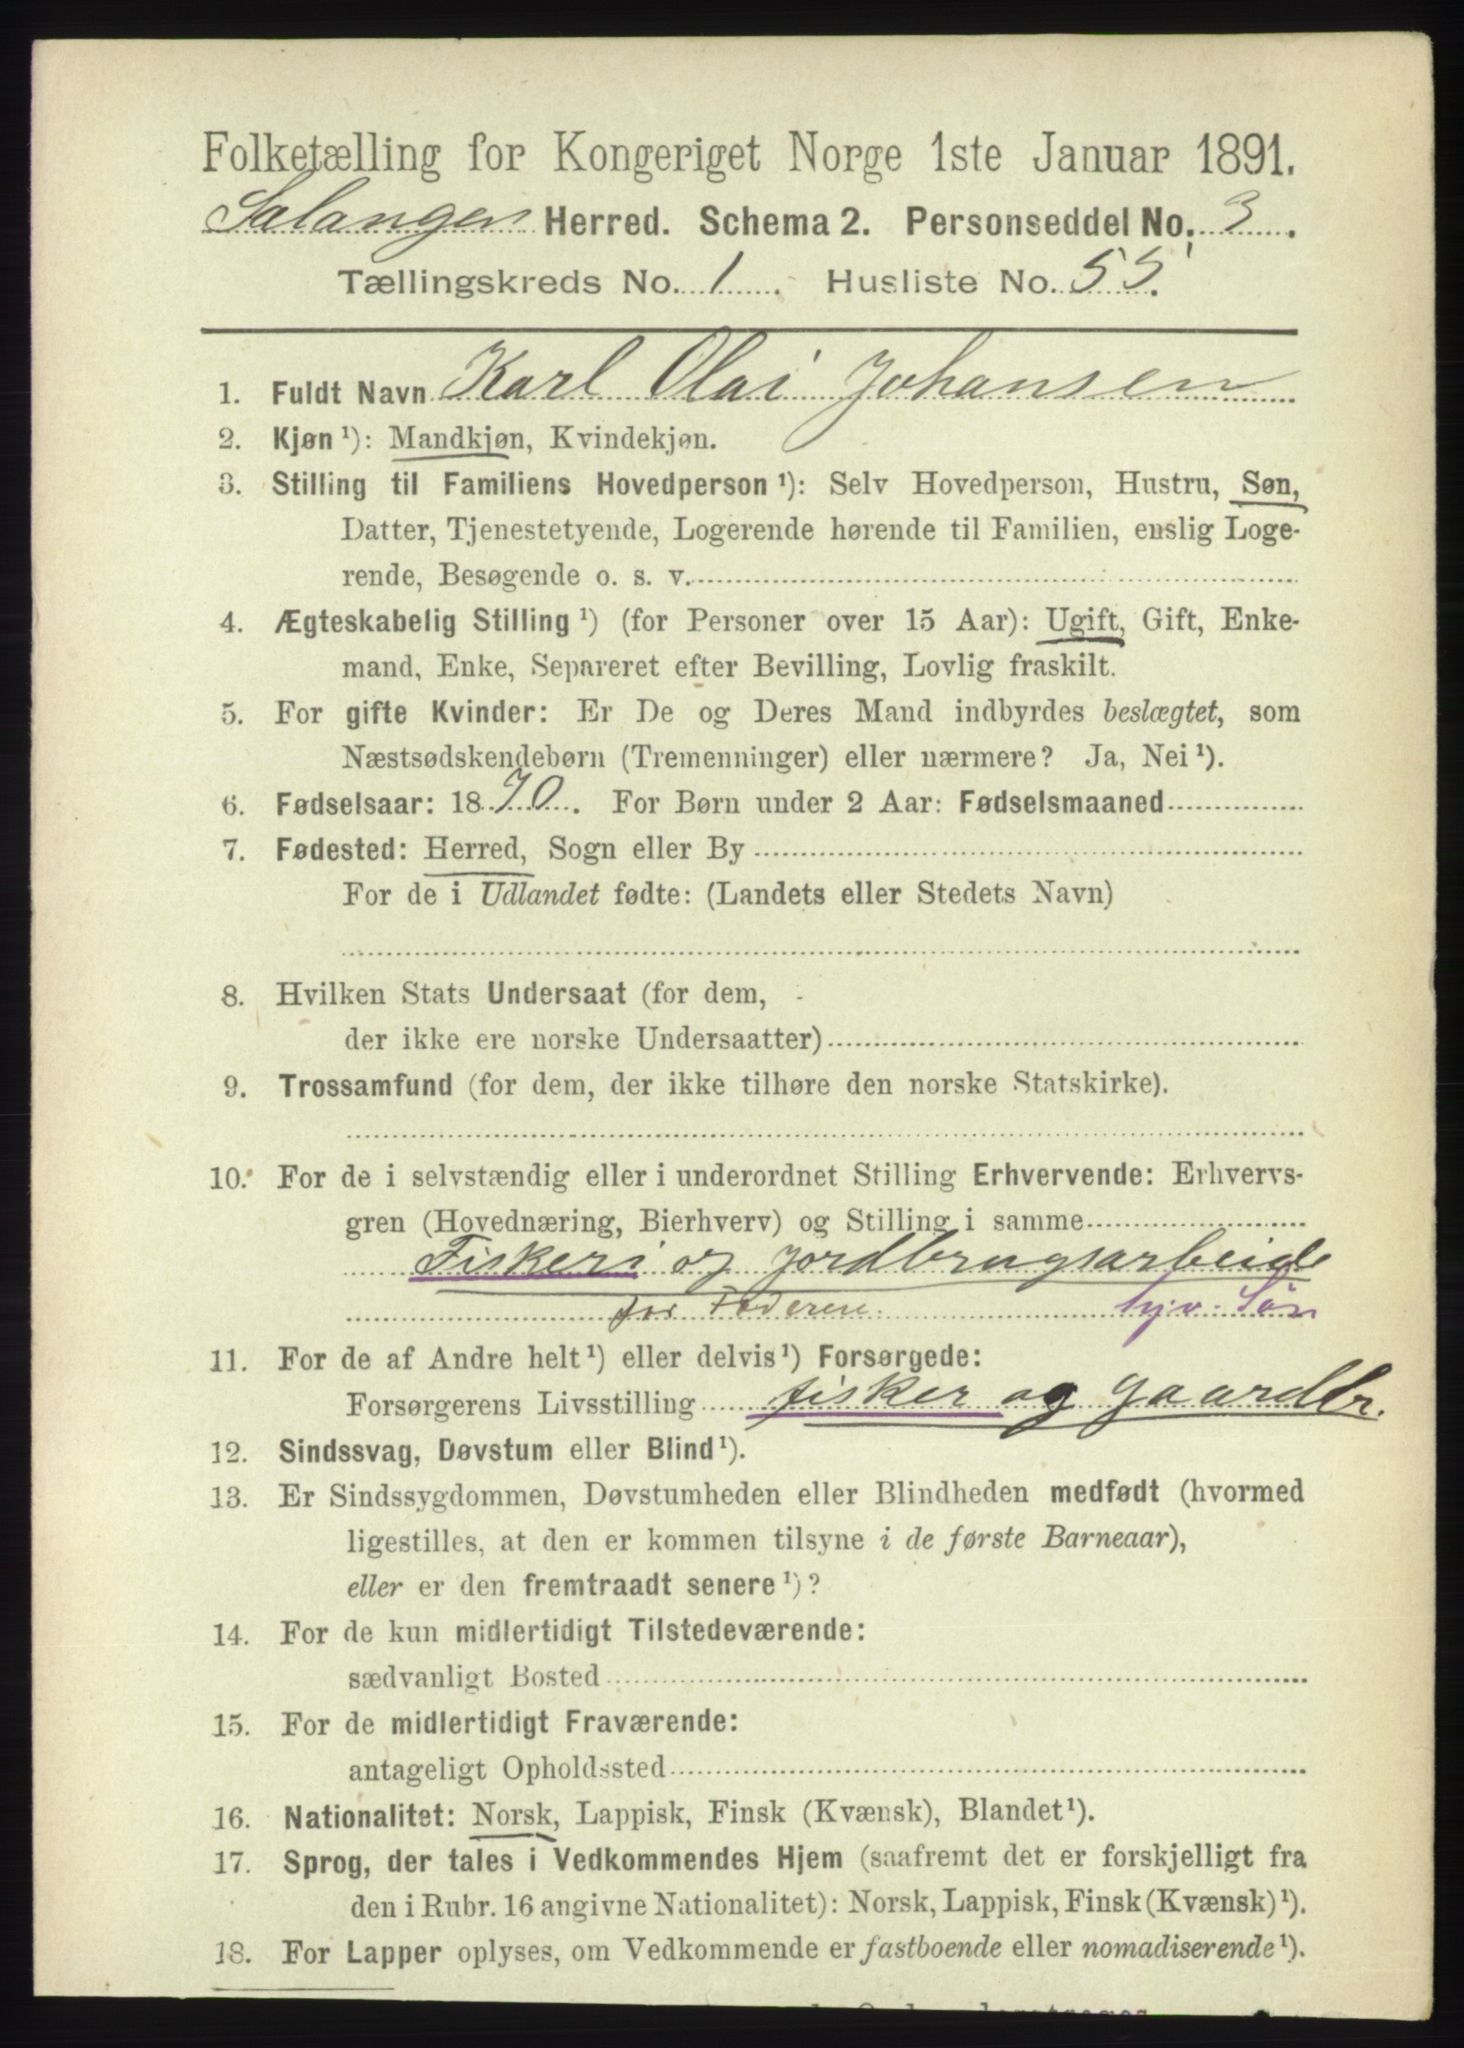 Folketælling for Kongeriget Norge 1ste Januar 1891.
Salangen Herred. Schema 2. Personseddel No. 3.
Tællingskreds No. 1. Husliste No. 55.
1. Fuldt Navn Karl Olai Johansen
2. Kjøn ¹): Mandkjøn, Kvindekjøn.
3. Stilling til Familiens Hovedperson ¹): Selv Hovedperson, Hustru, Søn,
Datter, Tjenestetyende, Logerende hørende til Familien, enslig Loge-
rende, Besøgende o. s. v.
4. Ægteskabelig Stilling ¹) (for Personer over 15 Aar): Ugift, Gift, Enke-
mand, Enke, Separeret efter Bevilling, Lovlig fraskilt.
5. For gifte Kvinder: Er De og Deres Mand indbyrdes beslægtet, som
Næstsødskendebørn (Tremenninger) eller nærmere? Ja, Nei ¹).
6. Fødselsaar: 1870. For Børn under 2 Aar: Fødselsmaaned
7. Fødested: Herred, Sogn eller By
For de i Udlandet fødte: (Landets eller Stedets Navn)
8. Hvilken Stats Undersaat (for dem,
der ikke ere norske Undersaatter)
9. Trossamfund (for dem, der ikke tilhøre den norske Statskirke).
10. For de i selvstændig eller i underordnet Stilling Erhvervende: Erhvervs-
gren (Hovednæring, Bierhverv) og Stilling i samme
Fiskeri og Jordbrugsarbeide
for Faderen. hjv. Søn
11. For de af Andre helt ¹) eller delvis ¹) Forsørgede:
Forsørgerens Livsstilling fisker og gaardbr.
12. Sindssvag, Døvstum eller Blind ¹).
13. Er Sindssygdommen, Døvstumheden eller Blindheden medfødt (hvormed
ligestilles, at den er kommen tilsyne i de første Barneaar),
eller er den fremtraadt senere ¹)?
14. For de kun midlertidigt Tilstedeværende:
sædvanligt Bosted
15. For de midlertidigt Fraværende:
antageligt Opholdssted
16. Nationalitet: Norsk, Lappisk, Finsk (Kvænsk), Blandet ¹).
17. Sprog, der tales i Vedkommendes Hjem (saafremt det er forskjelligt fra
den i Rubr. 16 angivne Nationalitet): Norsk, Lappisk, Finsk (Kvænsk) ¹).
18. For Lapper oplyses, om Vedkommende er fastboende eller nomadiserende ¹).